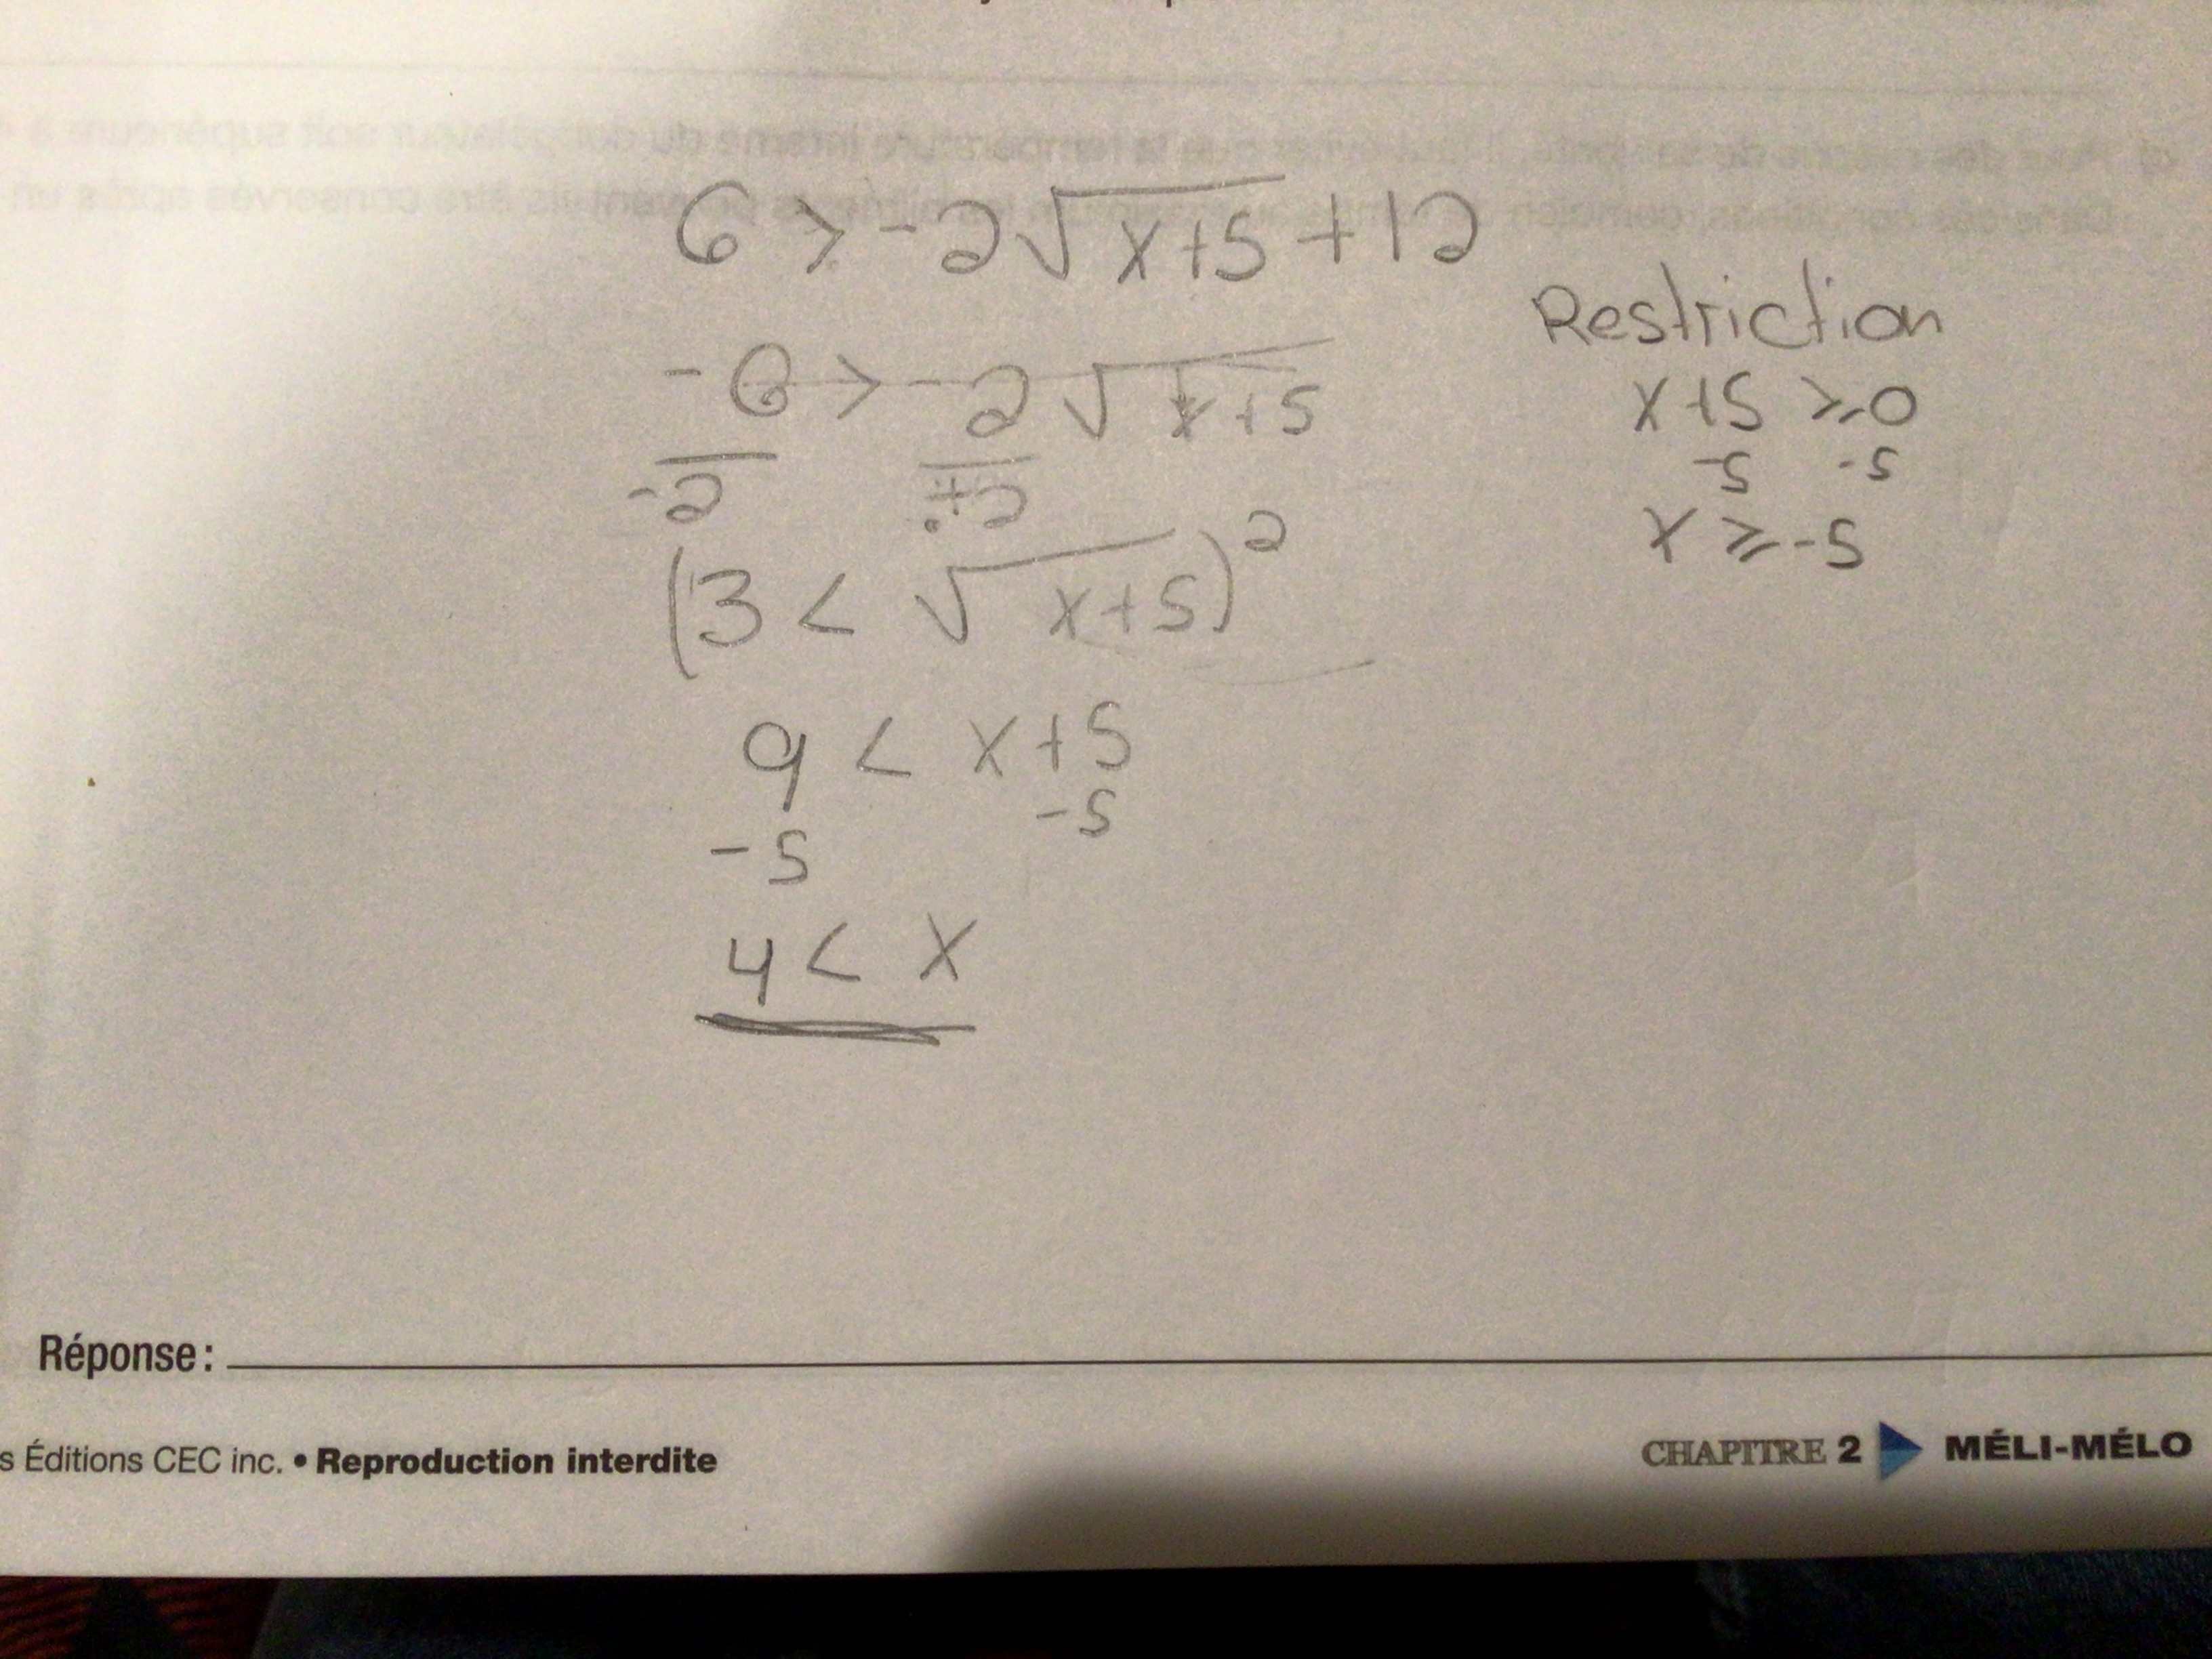 6 > -2√x+5 + 12
-6 > -2√x+5
-2 ÷-2
(3 < √x+5)²
9 < x+5
-5 -5
4 < x
Restriction
x+5 ≥ 0
-5 -5
x ≥ -5
Réponse:
s Éditions CEC inc. • Reproduction interdite
CHAPITRE 2 ▶ MÉLI-MÉLO